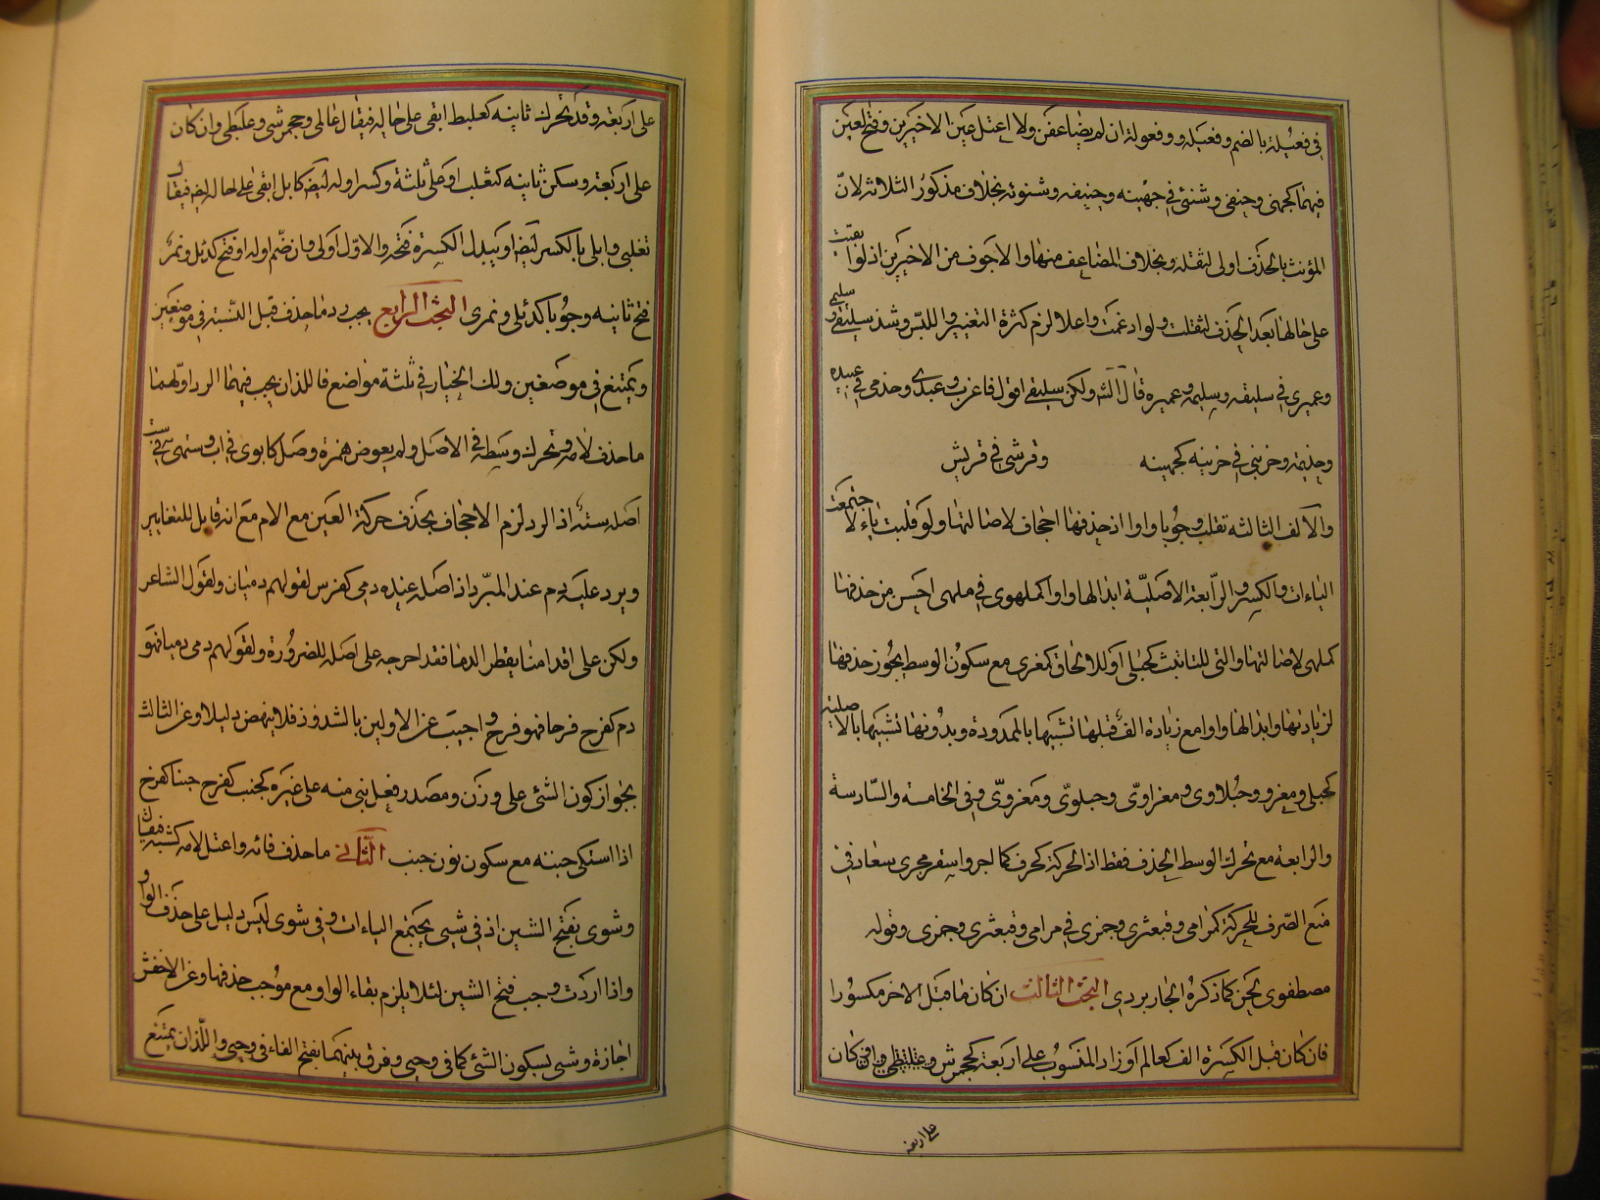 في فعيلة بالضم وفعيله وو فعولة ان لم يضاعفن ولا اعتل عين الاخيرين وفتح العين
فيهما كجهنى وحنفى وشنئى في جهينه وحنيفه وشنوئة بخلاف مذكور الثلاثة لان
المؤنث بالحذف اولى لثقله وبخلاف المضاعف منها والاجوف من الاخيرين اذ لو ابقيت
على حالها بعد الحذف لثقلت ولو ادغمت واعلا لزم كثرة التغيير واللبس وشذ سليقى و سليمى
وعميرى في سليقه وسليمه وعميره قال ولكن سليقى اقول فاعرب وعبدى وجذمى في عبيده
وجذيمة وخزينى في خزينه كجهينه وقرشى في قريش
والالف الثالثه تقلب وجوبا واوا اذ حذفها اجحاف لاصالتها ولو قلبت ياء لاجتمعت
الياءات والكسر والرابعة الاصلية ابدالها واوا كملهوى في ملهى احسن من حذفها
كملهى لاصالتها والتى للتانيث كحبلى او للالحاق كمغرى مع سكون الوسط يجوز حذفها
لزيادتها وابدالها واوا مع زيادة الف قبلها تشبيها بالممدودة وبدونها تشبيها بالاصلية
كحبلى ومعزى وحبلاوى ومعزاوى وحبلوى ومعزوى وفي الخامسة والسادسة
والرابعة مع تحرك الوسط الحذف فقط اذ الحركة كحرف كما اجروا سقر مجرى سعاد في
منع الصرف للحركة كمرامى وقبعثرى وجمزى في مرامى وقبعثرى وجمزى وقوله
مصطفوى لحن كما ذكره الجاربردى البحث الثالث ان كان ما قبل الاخر مكسورا
فان كان قبل الكسرة الف كعالم او زاد المنسوب على اربعة كجحمرش وان كان
على اربعة
على اربعة وقد تحرك ثانيه كعلبط ابقى على حاله فيقال عالمى وجحمرشى وعلبطى وان كان
على اربعة وسكن ثانيه كتغلب او على ثلثة وكسر اوله ايضا كابل ابقى على حاله ايضا فيقال
تغلبى وابلى بالكسر ايضا او يبدل الكسرة فتحة والاول اولى وان ضم اوله او فتح كدئل ونمر
فتح ثانيه وجوبا كدئلى ونمرى البحث الرابع يجب رد ما حذف قبل النسبة في موضعين
ويمتنع في موضعين ولك الخيار في ثلثة مواضع فاللذان يجب فيهما الرد اولهما
ما حذف لامه وتحرك وسطه في الاصل ولم يعوض همزة وصل كابوى في اب وستهى في ست
اصله سته اذ الرد لزم الاجحاف بحذف حركة العين مع الام مع انه قابل للتغايير
ويرد عليه دم عند المبرد اذ اصله عنده دمى كفرس لقولهم دميان ولقول الشاعر
ولكن على اقدامنا يقطر الدما فقد اخرجه على اصله للضرورة ولقولهم دمى دميا فهو
دم كفرح فرحا فهو فرح واجيب عن الاولين بالشذوذ فلا ينهض دليلا وعن الثالث
بجواز كون الشئ على وزن ومصدر فعل بنى منه على غيره كجنب كفرح جنبا كفرح
اذا اشتكى جنبه مع سكون نون جنب الثانى ما حذف فائه واعتل لامه كشية فيقال
وشوى بفتح الشين اذ في شيى يجتمع الياءات وفي شوى ليس دليل على حذف الواو
واذا اردت وجب فتح الشين لئلا يلزم بقاء الواو مع موجب حذفها وعن الاخفش
اجازة وشيى بسكون الشئ كما في وحيى وفرق بينهما بفتح الفاء في وحيى واللذان يمتنع